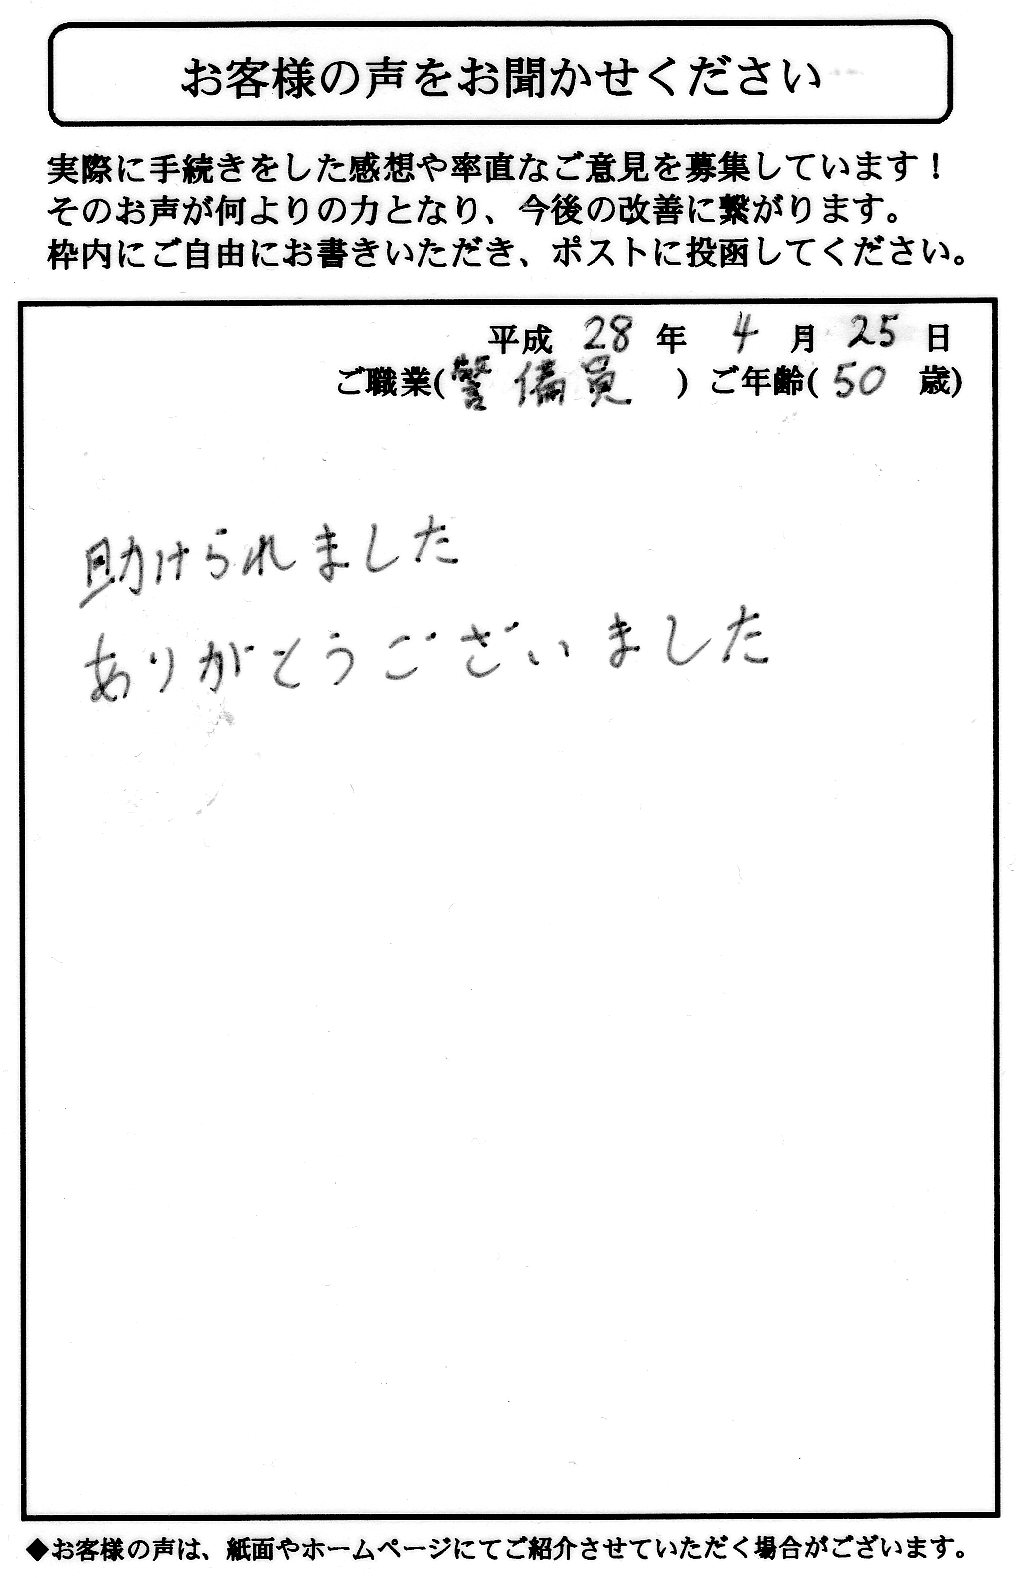 お客様の声をお聞かせください
実際に手続きをした感想や率直なご意見を募集しています！
そのお声が何よりの力となり、今後の改善に繋がります。
枠内にご自由にお書きいただき、ポストに投函してください。
平成 28 年 4 月 25 日
ご職業(警備員) ご年齢(50 歳)
助けられました
ありがとうございました
◆お客様の声は、紙面やホームページにてご紹介させていただく場合がございます。